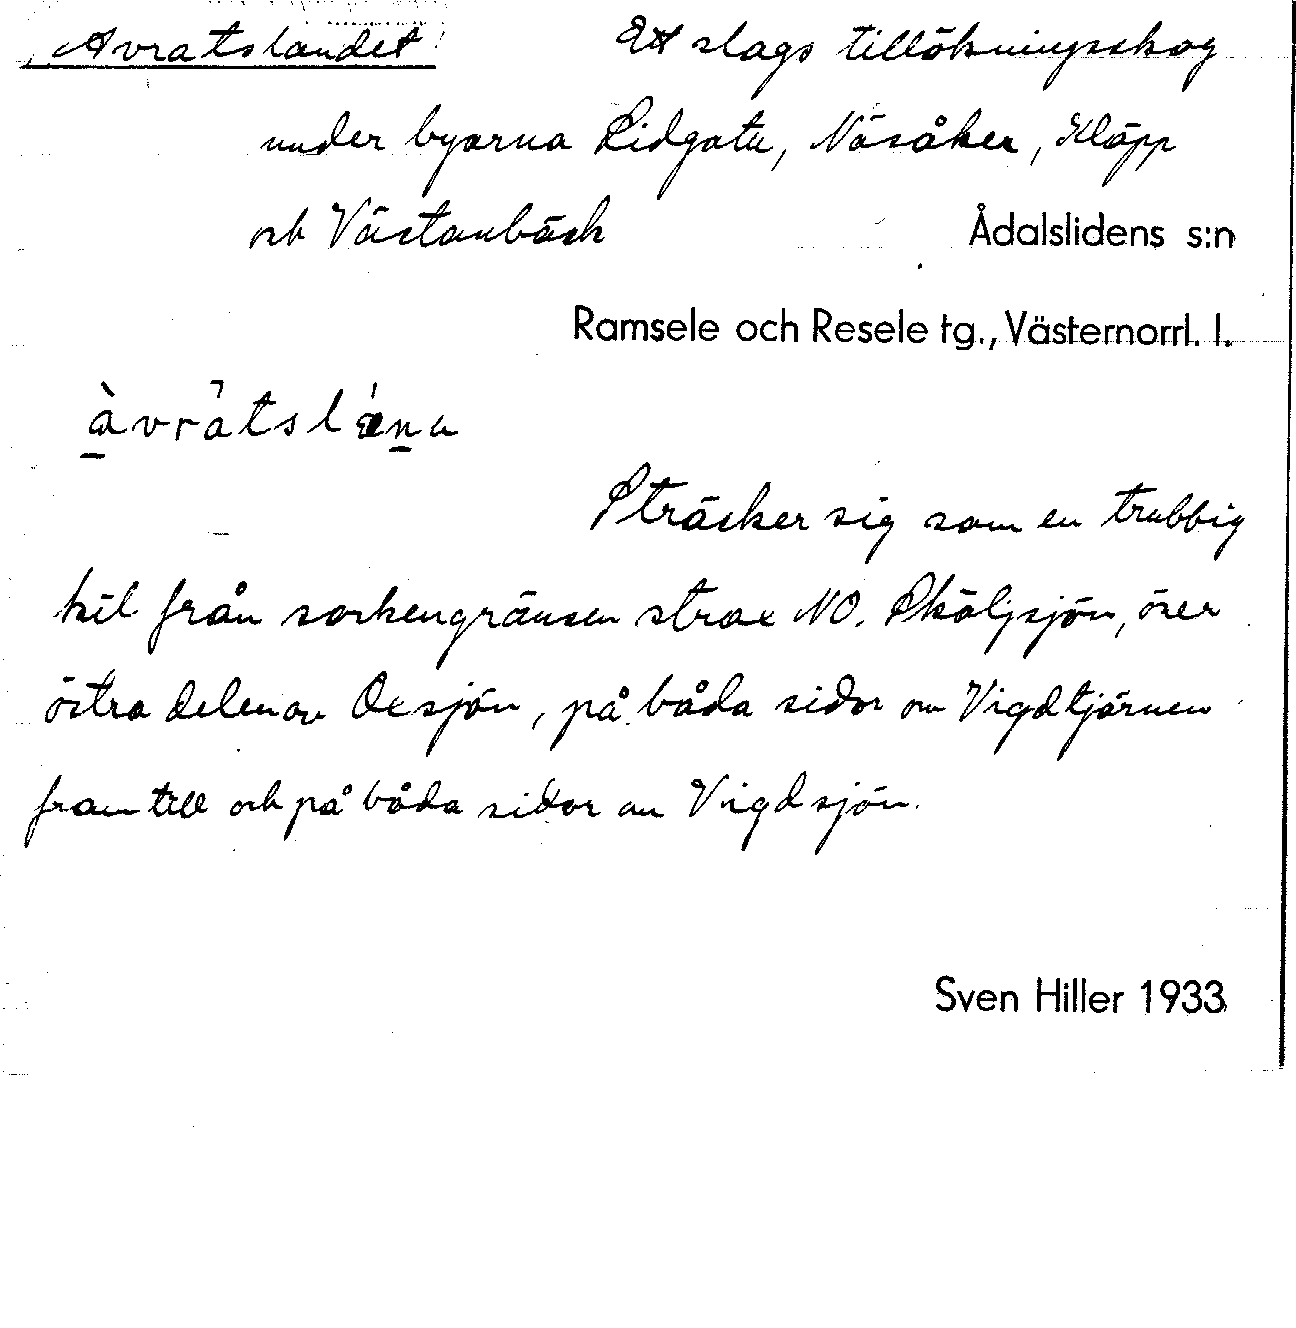 Avratslandet Ett slags tillökningsskog
under byarna Lidgatu, Näsåker, Kläpp
och Västanbäck Ådalslidens s:n
Ramsele och Resele tg., Västernorrl. l.
Sträcker sig som en trubbig
kil från sockengränsen strax NO. Skälgsjön, över
östra delen av Oxsjön, på båda sidor om Vigdtjärnen
fram till och på båda sidor om Vigdsjön.
Sven Hiller 1933